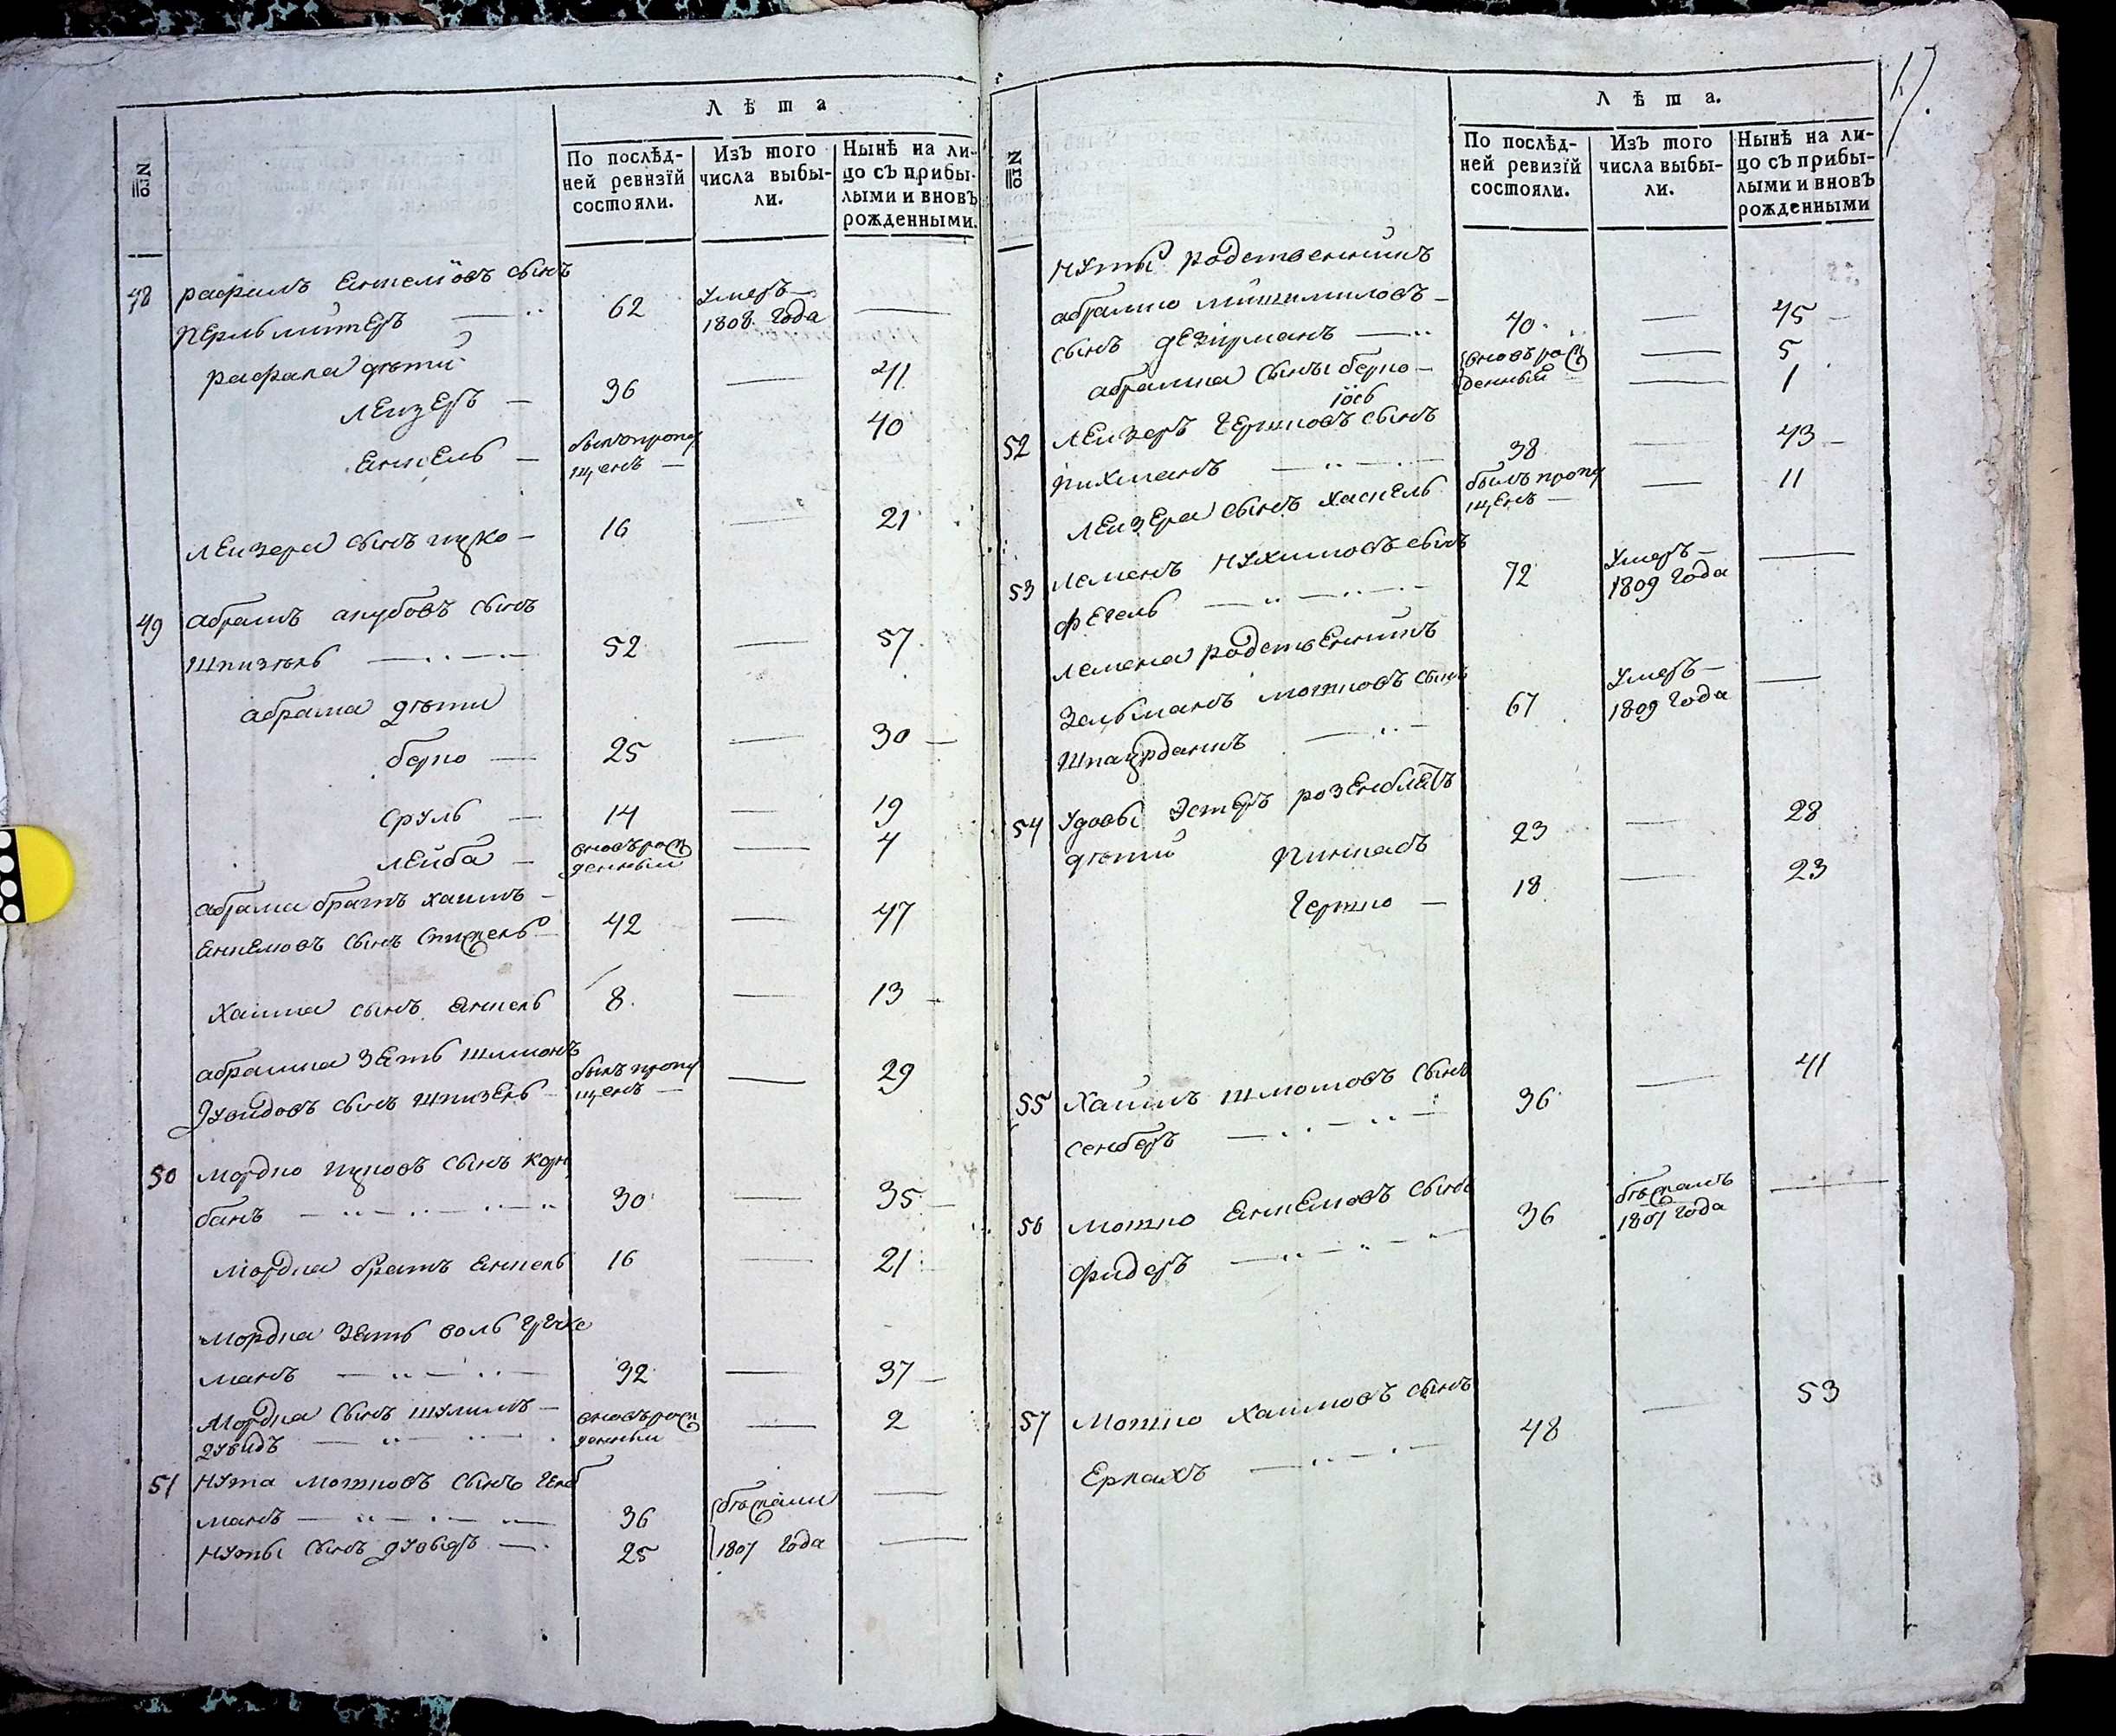 Лѣта
№
По послѣд-
ней ревизїй
состояли.
Изъ того
числа выбы-
ли.
Нынѣ на ли-
цо съ прибы-
лыми и вновь
рожденными.
48 рафаилъ Енкелiовъ сынъ
перльмитеръ 62 умеръ 1808 года —
рафала дѣти
Леизеръ — 36 — 41
Енкель — былъ пропу
щенъ — 40
Леизера сынъ ицко — 16 — 21
49 абрамъ акубовъ сынъ
шпизель 52 — 57
абрама дѣти
берко — 25 — 30
сруль — 14 — 19
лейба — вновь рож
денный — 4
абрама братъ хаимъ —
Енкелювъ сынъ 42 — 47
хаима сынъ енкель 8 — 13
абрама зять шлиомъ былъ пропу
дувидовъ сынъ шпизель — щенъ — 29
50 мордко ицковъ сынъ кор
банъ 30 — 35
мордка братъ енкель 16 — 21
мордка зять воль
манъ 32 — 37
мордка сынъ шулимъ — вновь рож
дувидъ денный — 2
51 нута мошковъ сынъ
манъ 36 бѣжали —
нуты сынъ дувидъ — 25 1807 года —
17.
№
Лѣта.
По послѣд-
ней ревизїй
состояли.
Изъ того
числа выбы-
ли.
Нынѣ на ли-
цо съ прибы-
лыми и вновь
рожденными
нуты родственникъ
абрамко
сынъ 40 — 45
абрамка сыны берко — вновь рож — 5
іосъ денный — 1
52 Леизеръ Гершковъ сынъ
пихманъ 38 — 43
Леизера сынъ хаскель былъ пропу
щенъ — 11
53 Лемень нухимовъ сынъ умеръ —
фегель 72 1809 года —
лемена родственникъ
Зельманъ мошковъ сынъ умеръ —
67 1809 года —
54 удовы Эстеръ розенблатъ
дѣти пинкасъ 23 — 28
Гершко — 18 — 23
55 Хаимъ шмомовъ сынъ — 41
сенберъ 36
56 Мошко Енкелювъ сынъ бѣжалъ —
фидеръ 36 1807 года
57 Мошко хаимовъ сынъ — 53
Ерпахъ 48